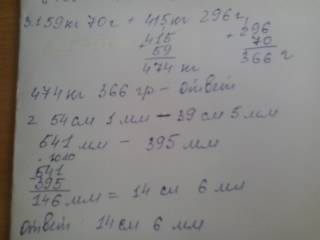 3. 59 кг 70 г + 415 кг 296 г
415
59
474 кг
+ 296
70
366 г
474 кг 366 гр - ответ
2 54 см 1 мм - 39 см 5 мм
541 мм - 395 мм
- 541
395
146 мм = 14 см 6 мм
ответ: 14 см 6 мм